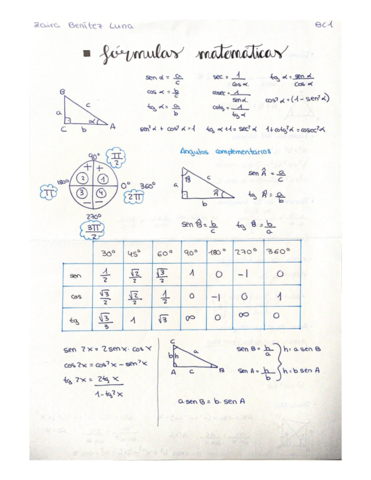 Zaira Benítez Luna BC1
fórmulas matemáticas
sen α = a/c sec = 1/cos α tg α = sen α/cos α
cos α = b/c cosec = 1/sen α cos² α = (1 - sen² α)
tg α = a/b cotg = 1/tg α
sen² α + cos² α = 1 tg² α + 1 = sec² α 1 + cotg² α = cosec² α
B
a c
C b A α
90° π/2
180° π 0° 360° 2π
+ +
2 1
3 4
- -
270°
3π/2
Ángulos complementarios
B
a c
b A
sen Â = a/c
tg Â = a/b
sen B̂ = b/c tg B̂ = b/a
30° 45° 60° 90° 180° 270° 360°
sen 1/2 √2/2 √3/2 1 0 -1 0
cos √3/2 √2/2 1/2 0 -1 0 1
tg √3/3 1 √3 ∞ 0 ∞ 0
sen 2x = 2 sen x · cos x
cos 2x = cos² x - sen² x
tg 2x = 2tg x/1 - tg² x
C
b h a
A c B
sen B = h/a } h = a sen B
sen A = h/b } h = b sen A
a sen B = b · sen A